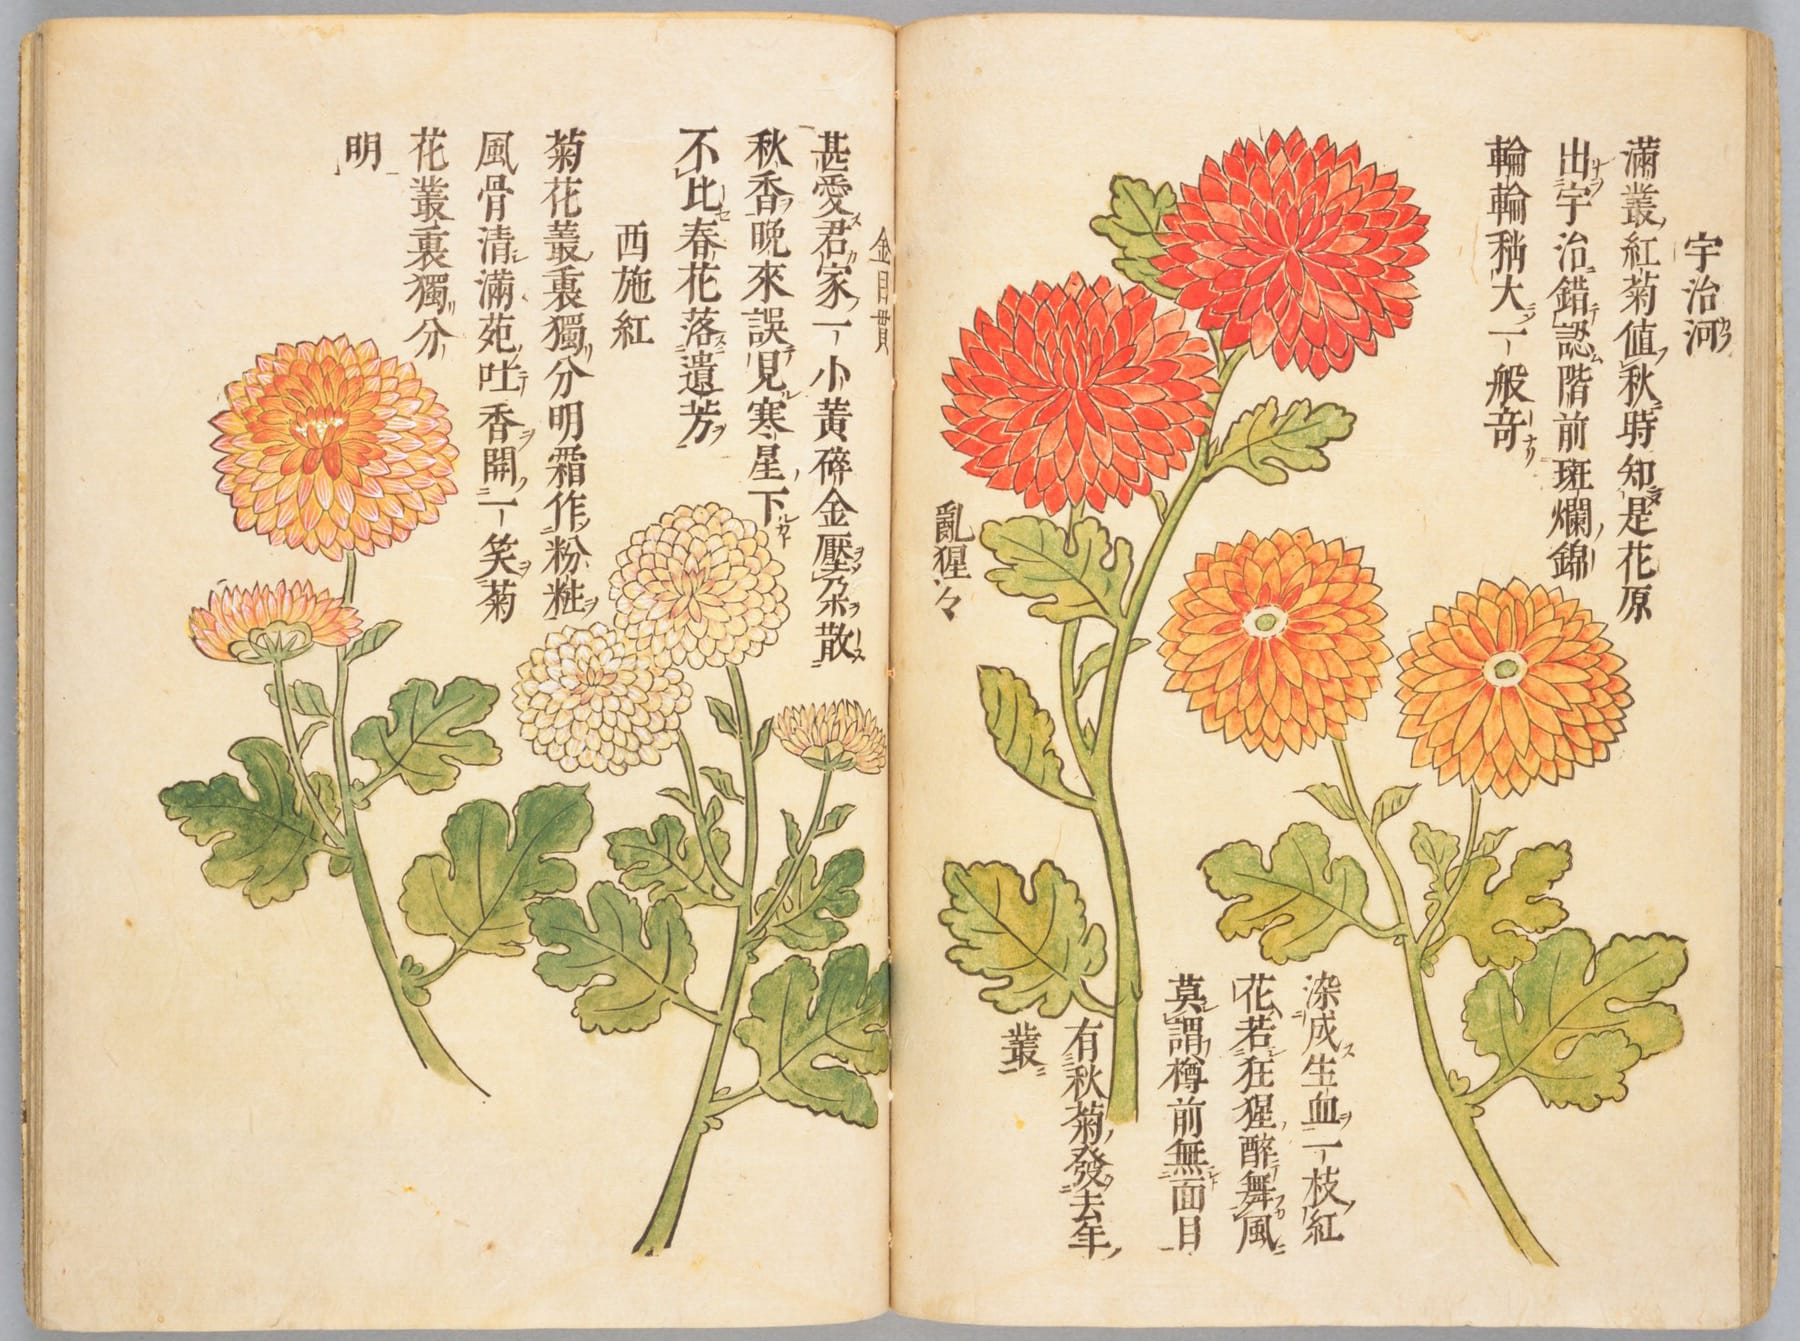 宇治河
滿叢紅菊値秋時知是花原
出宇治錯認階前斑爛錦
輪輪稍大一般竒
亂猩々
染成生血一枝紅
花若狂猩醉舞風
莫謂樽前無面目
有秋菊發去年
叢
金目貫
甚愛君家一小黄碎金壓朶散
秋香晩來誤見寒星下
不比春花落遺芳
西施紅
菊花叢裏獨分明霜作粉粧
風骨清滿苑吐香開一笑菊
花叢裏獨分
明